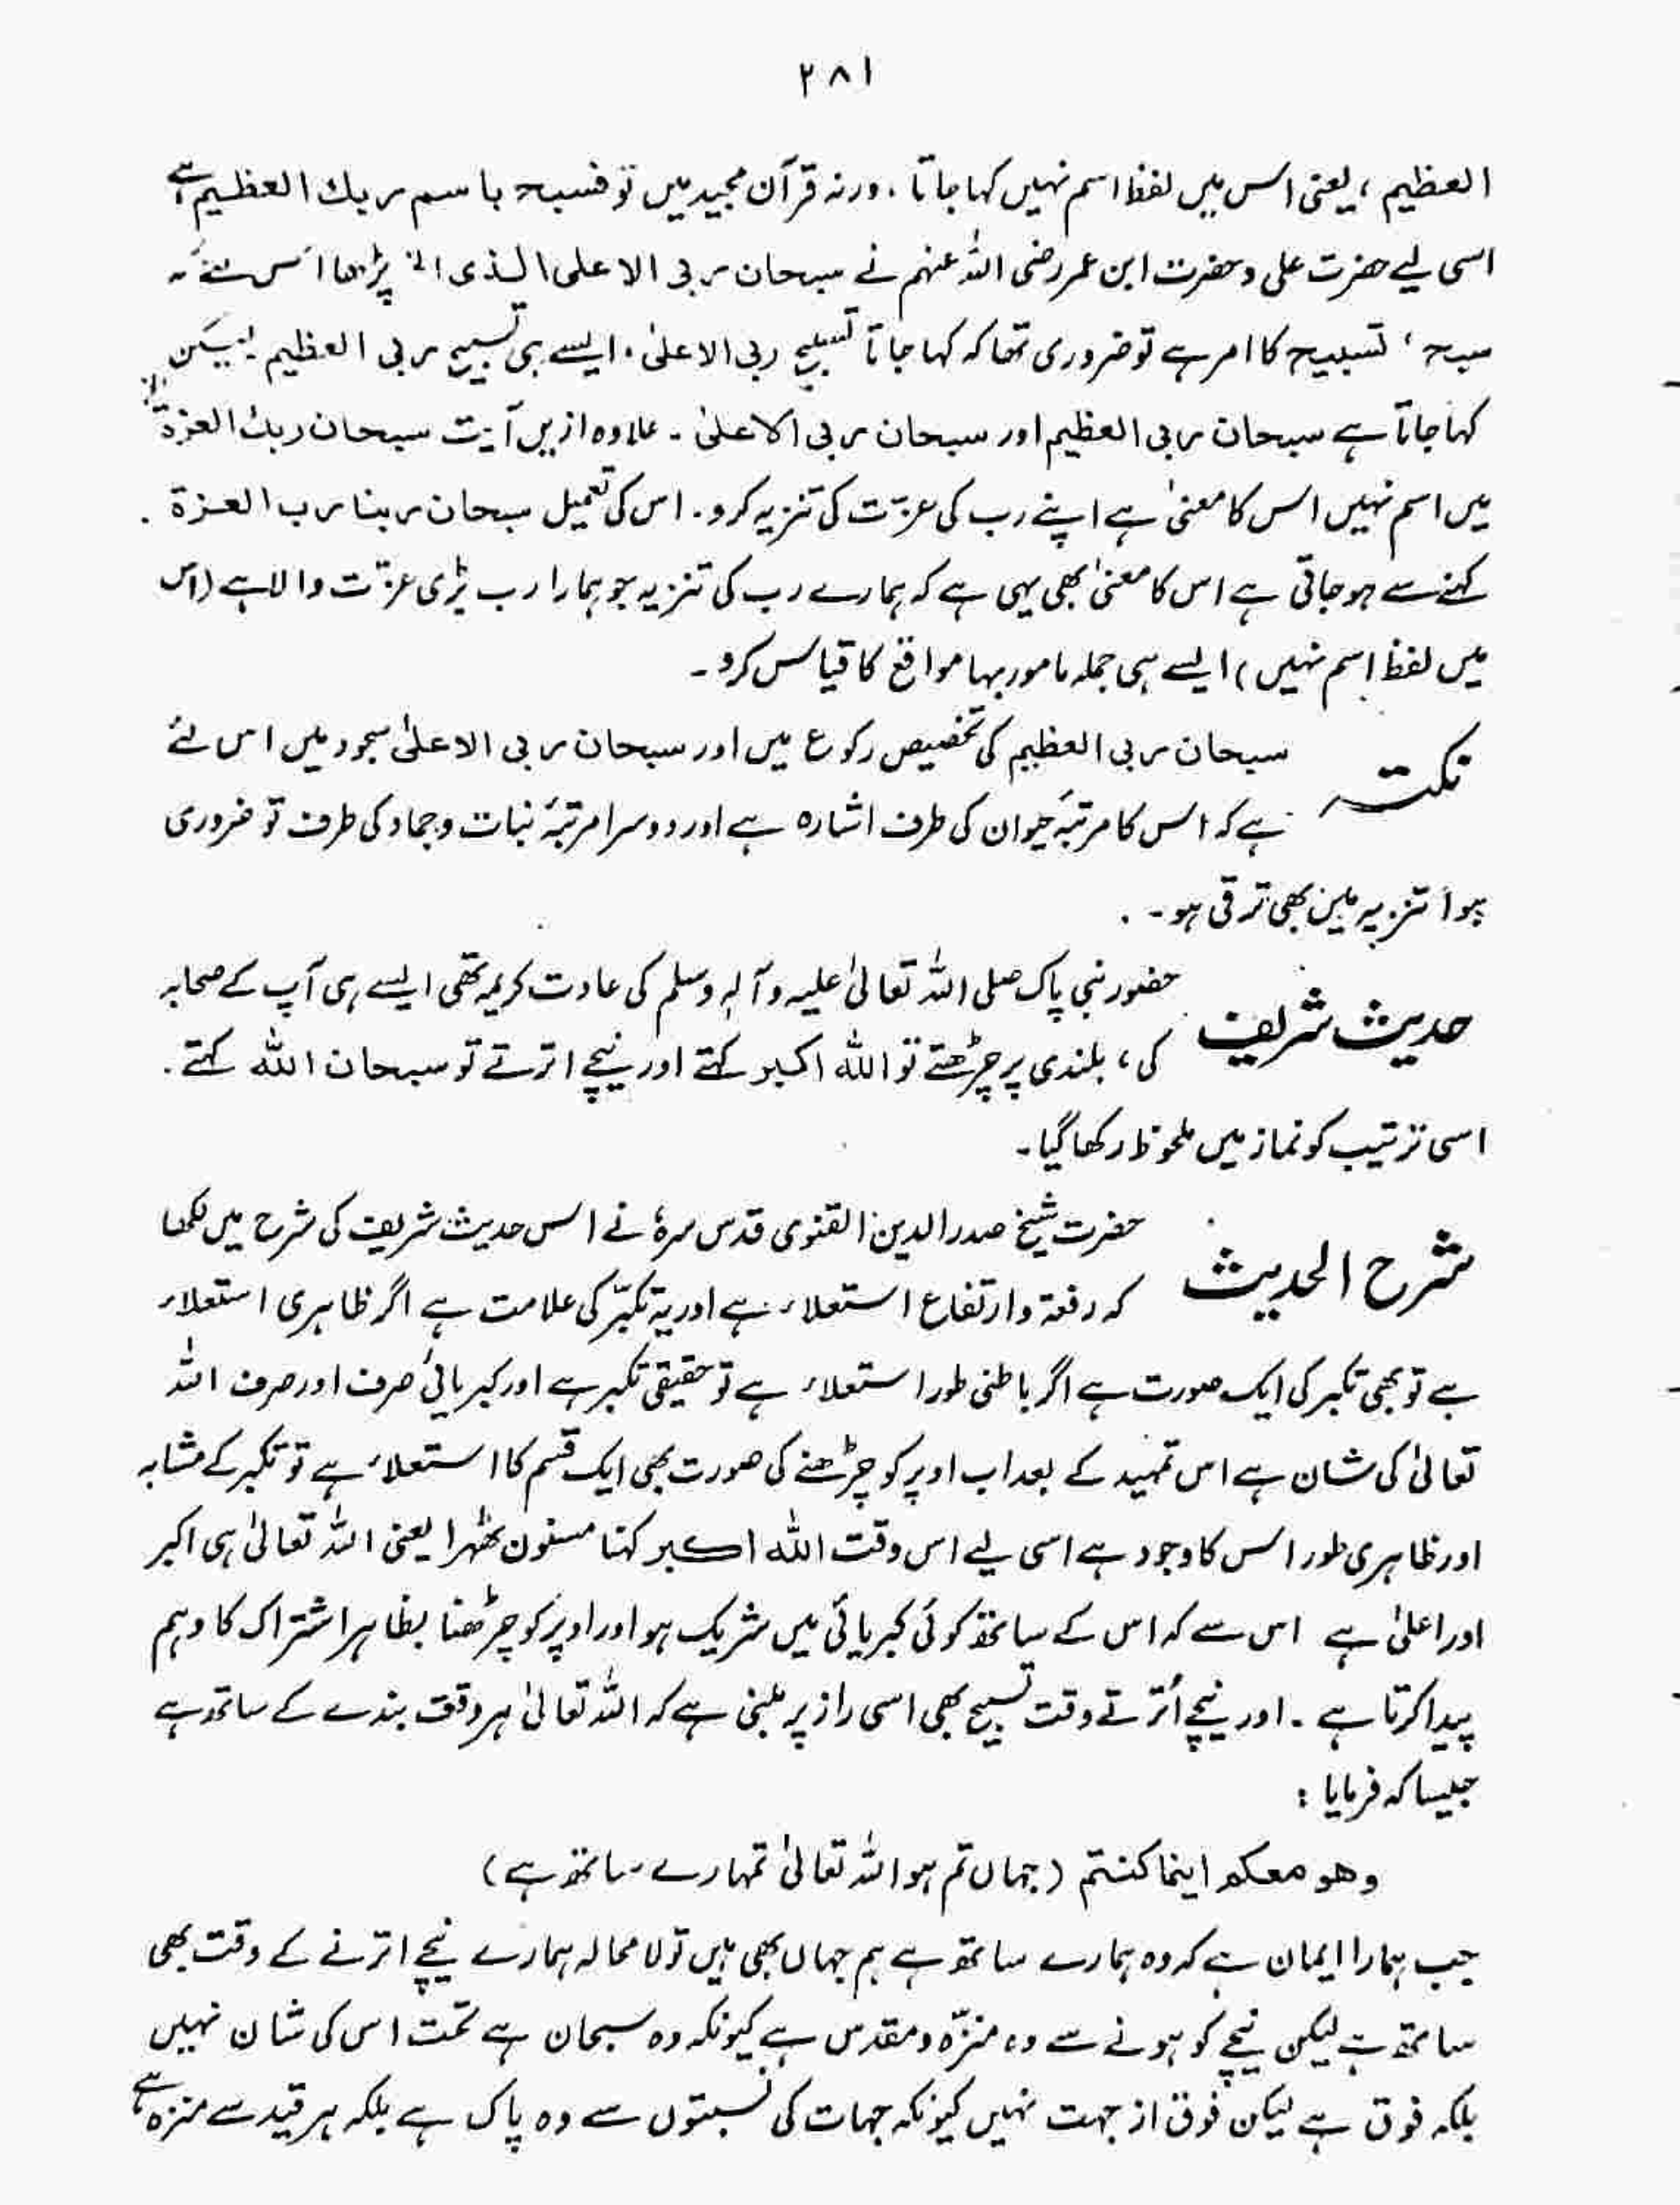 ۲۸۱
العظیم ، یعنی اس میں لفظ اسم نہیں کہا جاتا ، ورنہ قرآن مجید میں تو فسبح باسم ربك العظیم ہے
اسی لیے حضرت علی و حضرت ابن عمر رضی اللہ عنہم نے سبحان ربی الاعلی الذی الخ پڑھا اس لئے کہ
سبح ، تسبیح کا امر ہے تو ضروری تھا کہ کہا جاتا تسبیح ربی الاعلیٰ ، ایسے ہی تسبیح ربی العظیم لیکن
کہا جاتا ہے سبحان ربی العظیم اور سبحان ربی الاعلیٰ ۔ علاوہ ازیں آیت سبحان ربك رب العزة
میں اسم نہیں اس کا معنیٰ ہے اپنے رب کی عزت کی تنزیہ کرو ۔ اس کی تعمیل سبحان ربنا رب العزة
کہنے سے ہو جاتی ہے اس کا معنیٰ بھی یہی ہے کہ ہمارے رب کی تنزیہ جو ہمارا رب بڑی عزّت والا ہے (اس
میں لفظ اسم نہیں) ایسے ہی جملہ مامور بہا مواقع کا قیاس کرو ۔
نکتہ سبحان ربی العظیم کی تخصیص رکوع میں اور سبحان ربی الاعلیٰ سجود میں اس لئے
ہے کہ اس کا مرتبۂ حیوان کی طرف اشارہ ہے اور دوسرا مرتبۂ نبات و جماد کی طرف تو ضروری
ہوا تنزیہ میں بھی ترقی ہو ۔
حدیث شریف حضور نبی پاک صلی اللہ تعالیٰ علیہ وآلہٖ وسلم کی عادت کریمہ تھی ایسے ہی آپ کے صحابہ
کی ، بلندی پر چڑھتے تو اللہ اکبر کہتے اور نیچے اترتے تو سبحان اللہ کہتے ۔
اسی ترتیب کو نماز میں ملحوظ رکھا گیا ۔
شرح الحدیث حضرت شیخ صدرالدین القنوی قدس سرہٗ نے اس حدیث شریف کی شرح میں لکھا
کہ رفعۃ و ارتفاع استعلاء ہے اور یہ تکبّر کی علامت ہے اگر ظاہری استعلاء
ہے تو بھی تکبر کی ایک صورت ہے اگر باطنی طور استعلاء ہے تو حقیقی تکبر ہے اور کبریائی صرف اور صرف اللہ
تعالیٰ کی شان ہے اس تمہید کے بعد اب اوپر کو چڑھنے کی صورت بھی ایک قسم کا استعلاء ہے تو تکبر کے مشابہ
اور ظاہری طور اس کا وجود ہے اسی لیے اس وقت اللہ اکبر کہنا مسنون ٹھہرا یعنی اللہ تعالیٰ ہی اکبر
اور اعلیٰ ہے اس سے کہ اس کے ساتھ کوئی کبریائی میں شریک ہو اور اوپر کو چڑھنا بظاہر اشتراک کا وہم
پیدا کرتا ہے ۔ اور نیچے اُترتے وقت تسبیح بھی اسی راز پر مبنی ہے کہ اللہ تعالیٰ ہر وقت بندے کے ساتھ ہے
جیسا کہ فرمایا :
وهو معكم اينما كنتم (جہاں تم ہو اللہ تعالیٰ تمہارے ساتھ ہے)
جب ہمارا ایمان ہے کہ وہ ہمارے ساتھ ہے ہم جہاں بھی ہیں تو لامحالہ ہمارے نیچے اترنے کے وقت بھی
ساتھ ہے لیکن نیچے کو ہونے سے وہ منزّہ و مقدس ہے کیونکہ وہ سبحان ہے تحت اس کی شان نہیں
بلکہ فوق ہے لیکن فوق از جہت نہیں کیونکہ جہات کی نسبتوں سے وہ پاک ہے بلکہ ہر قید سے منزہ ہے